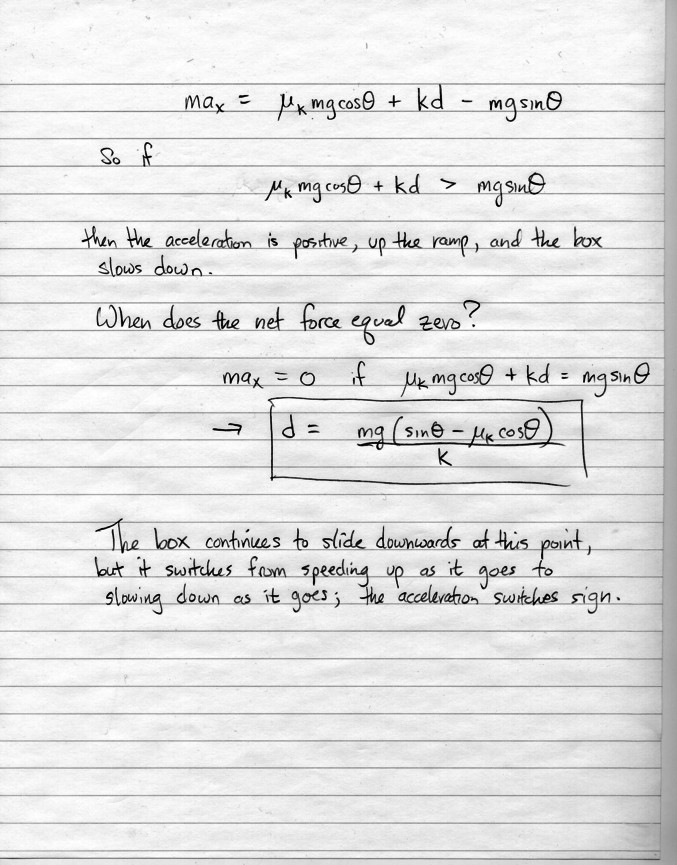 ma_x = μ_k mg cosθ + kd - mg sinθ
So if
μ_k mg cosθ + kd > mg sinθ
then the acceleration is positive, up the ramp, and the box
slows down.
When does the net force equal zero?
ma_x = 0 if μ_k mg cosθ + kd = mg sinθ
→ d = mg (sinθ - μ_k cosθ)
k
The box continues to slide downwards at this point,
but it switches from speeding up as it goes to
slowing down as it goes; the acceleration switches sign.